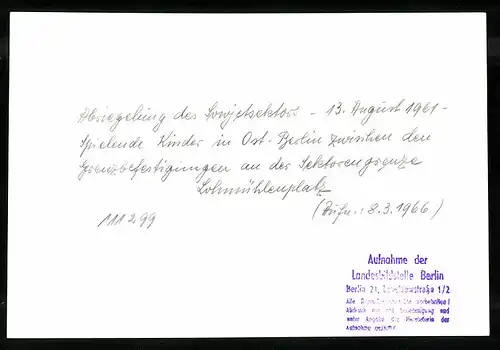 Abriegelung des Sowjetsektors - 13. August 1961 -
Spielende Kinder in Ost-Berlin zwischen den
Grenzbefestigungen an der Sektorengrenze
Lohmühlenplatz
(Aufn.: 8.3.1966)
111299
Aufnahme der
Landesbildstelle Berlin
Berlin 21, 1/2
Alle vorbehalten!
Abdruck nur mit Genehmigung und
unter Angabe der Herstellerin der
Aufnahme gestattet